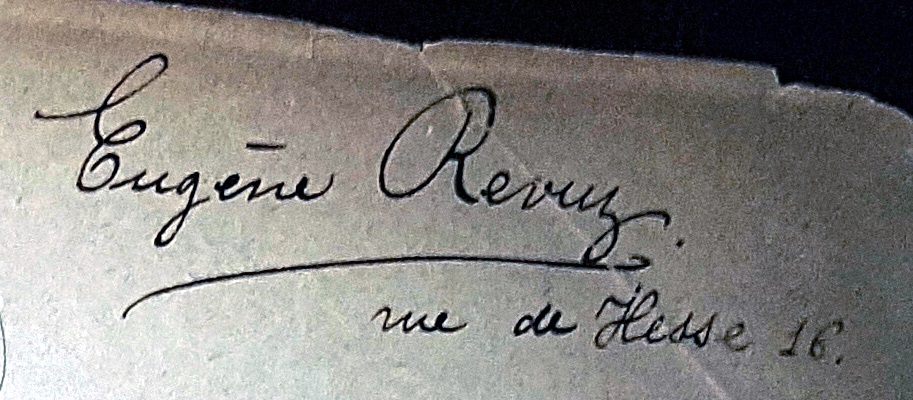 Eugène Revuz.
rue de Hesse 16.